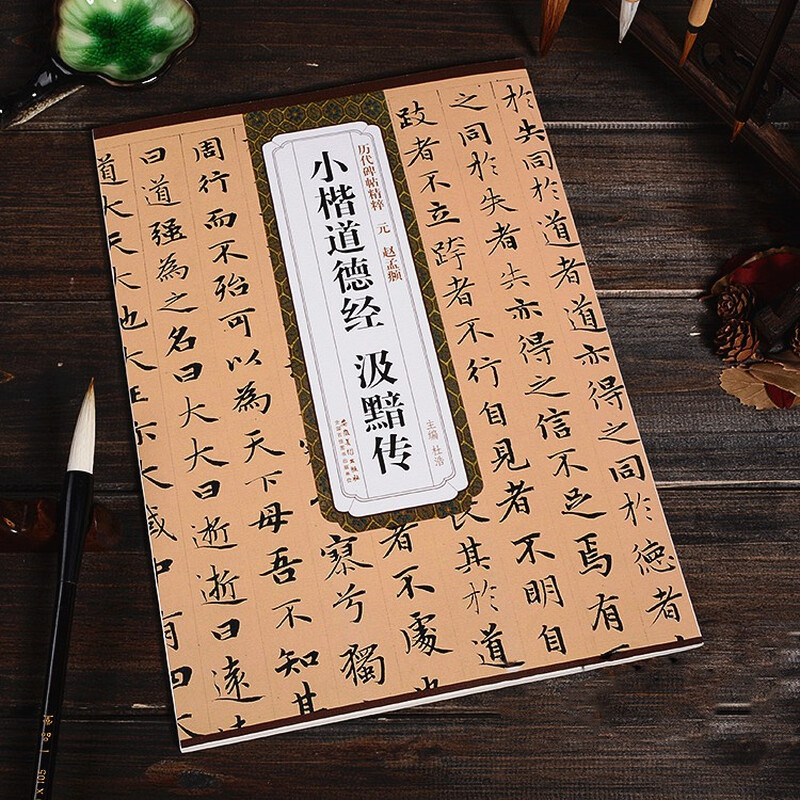 历代碑帖精粹 元 赵孟頫
小楷道德经 汲黯传
主编 杜浩
安徽美术出版社
全国百佳图书出版单位
於失同於道者道亦得之同於德者
之同於失者失亦得之信不足焉有
跂者不立跨者不行自見者不明自
長其於道
者不處也
寮兮獨
周行而不殆可以為天下母吾不知其
曰道強為之名曰大大曰逝逝曰遠遠
道大天大地大王亦大域中有四大